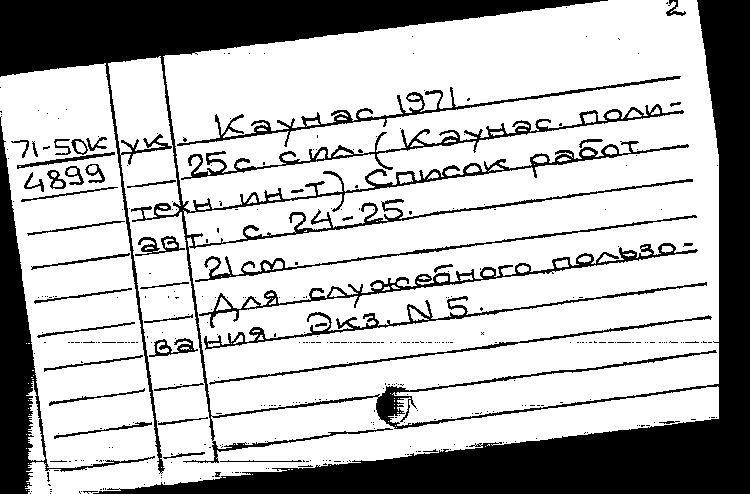 2
71-50К
4899
ук. Каунас, 1971.
25 с. с ил. (Каунас. поли=
техн. ин-т). Список работ
авт.: с. 24-25.
21 cm.
Для служебного пользо=
вания. Экз. N 5.